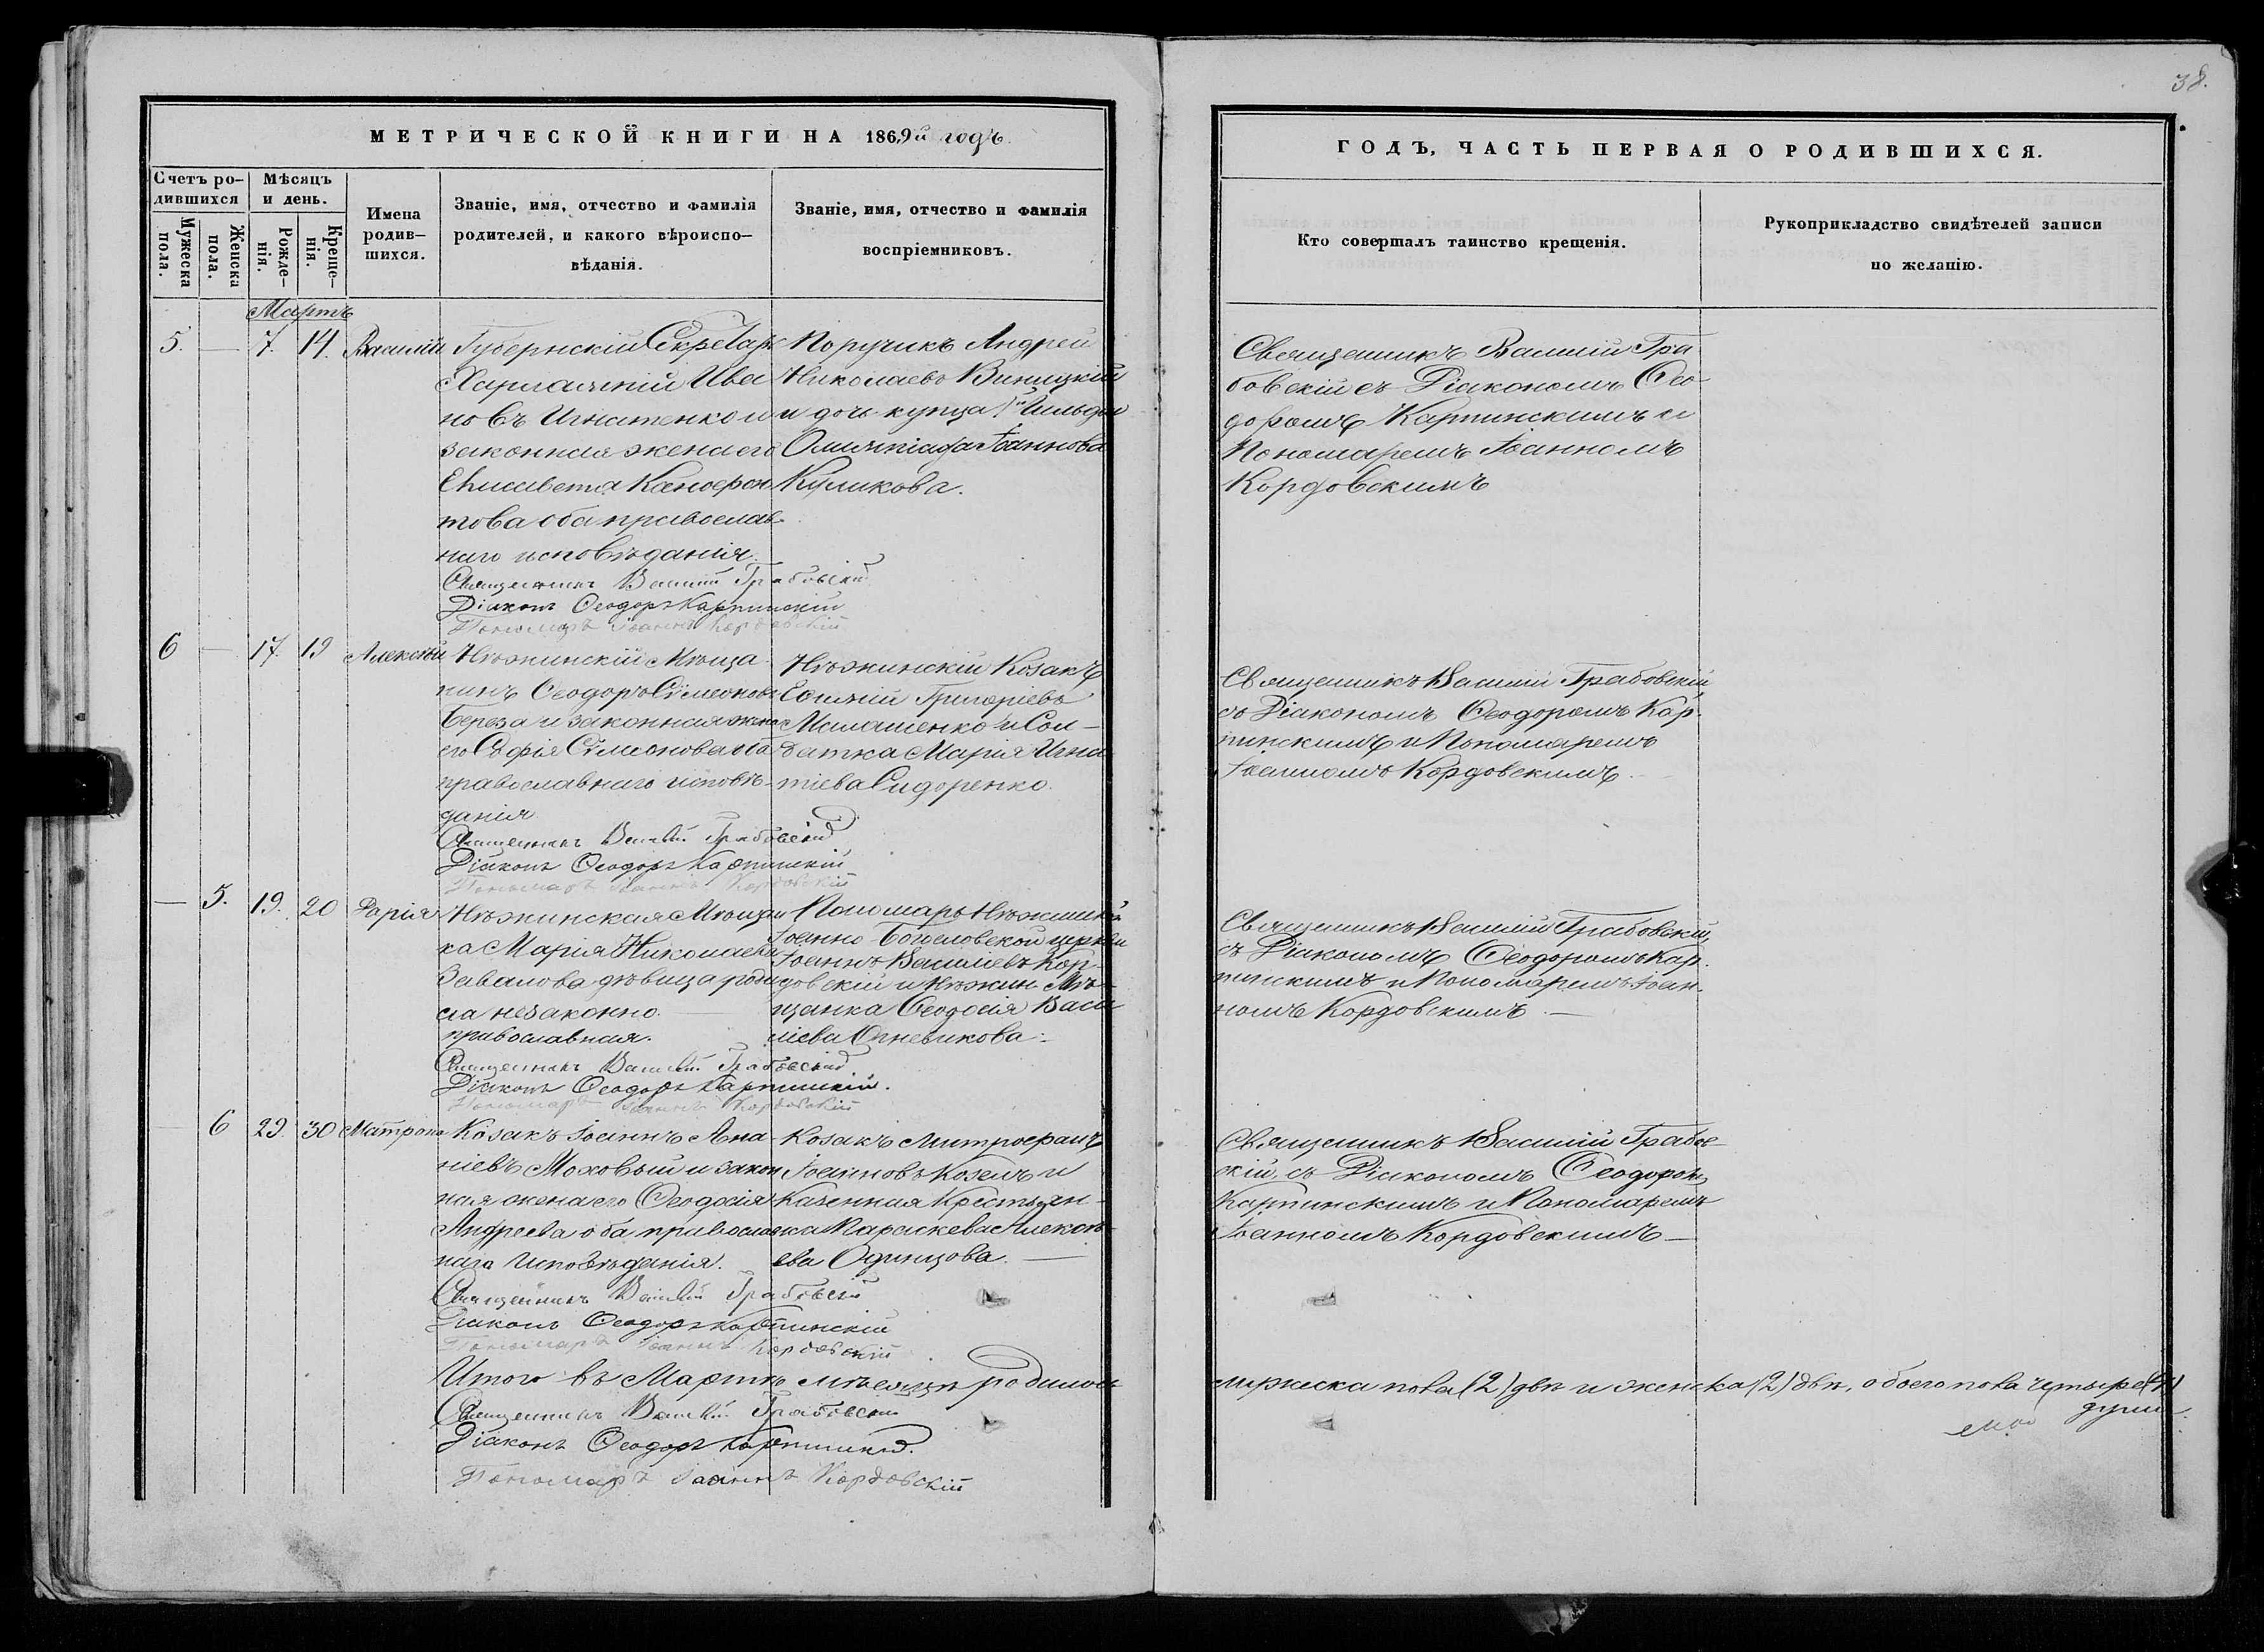 38.
МЕТРИЧЕСКОЙ КНИГИ НА 1869й годъ.
ГОДЪ, ЧАСТЬ ПЕРВАЯ О РОДИВШИХСЯ.
Счетъ ро-
дившихся
Мужеска
пола.
Женска
пола.
Мѣсяцъ
и день.
Рожде-
нія.
Креще-
нія.
Имена
родив-
шихся.
Званіе, имя, отчество и фамилія
родителей, и какого вѣроиспо-
вѣданія.
Званіе, имя, отчество и фамилія
воспріемниковъ.
Кто совершалъ таинство крещенія.
Рукоприкладство свидѣтелей записи
по желанію.
Мартъ
5. — 7. 14. Василій
Губернскій Секретарь
Харлампій Ива
новъ Игнатенко и
законная жена его
Елисавета Ксенофон
това оба православ
наго исповѣданія.
Священникъ Василій Грабовскій
Діаконъ Ѳеодоръ Карпинскій
Пономарь Іоаннъ Кордовскій
Поручикъ Андрей
Николаевъ Виницкій
и дочь купца
Олимпіада Іоаннова
Куликова.
Священникъ Василій Гра
бовскій съ Діакономъ Ѳео
доромъ Карпинскимъ и
Пономаремъ Іоанномъ
Кордовскимъ
6 — 17. 19 Алексѣй
Нѣжинскій Мѣща
нинъ Ѳеодоръ Симеоновъ
Береза и законная жена
его Софія Симеонова оба
православнаго исповѣ-
данія
Священникъ Василій Грабовскій
Діаконъ Ѳеодоръ Карпинскій
Пономарь Іоаннъ Кордовскій
Нѣжинскій Козакъ
Григоріевъ
и Сол-
датка Марія Игна
тіева Сидоренко.
Священникъ Василій Грабовскій
съ Діакономъ Ѳеодоромъ Кар-
пинскимъ и Пономаремъ
Іоанномъ Кордовскимъ.
— 5. 19. 20 Дарія
Нѣжинская Мѣщан
ка Марія Николаева
Завалова дѣвица роди
ла незаконно. —
православная.
Священникъ Василій Грабовскій
Діаконъ Ѳеодоръ Карпинскій.
Пономарь Іоаннъ Кордовскій
Пономарь Нѣжинской
Іоанно-Богословской церкви
Іоаннъ Василіевъ Кор-
довскій и Нѣжин. Мѣ-
щанка Ѳеодосія Васи
ліева Огневикова.
Священникъ Василій Грабовскій,
съ Діакономъ Ѳеодоромъ Кар-
пинскимъ и Пономаремъ Іоан-
номъ Кордовскимъ. —
6 29. 30 Матрона
Козакъ Іоаннъ Ана
ніевъ Моховый и закон
ная жена его Ѳеодосія
Андреева оба православ
наго исповѣданія.
Священникъ Василій Грабовскій
Діаконъ Ѳеодоръ Карпинскій
Пономарь Іоаннъ Кордовскій
Козакъ Митрофанъ
Іоанновъ Козелъ и
Казенная Крестьян-
ка Параскева Алексѣ-
ева Одинцова. —
Священникъ Василій Грабов-
скій, съ Діакономъ Ѳеодоромъ
Карпинскимъ и Пономаремъ
Іоанномъ Кордовскимъ —
Итого въ Мартѣ мѣсяцѣ родилось мужеска пола (2) два и женска (2) двѣ, обоего пола четыре (4)
души.
Священникъ Василій Грабовскій
Діаконъ Ѳеодоръ Карпинскій.
Пономарь Іоаннъ Кордовскій